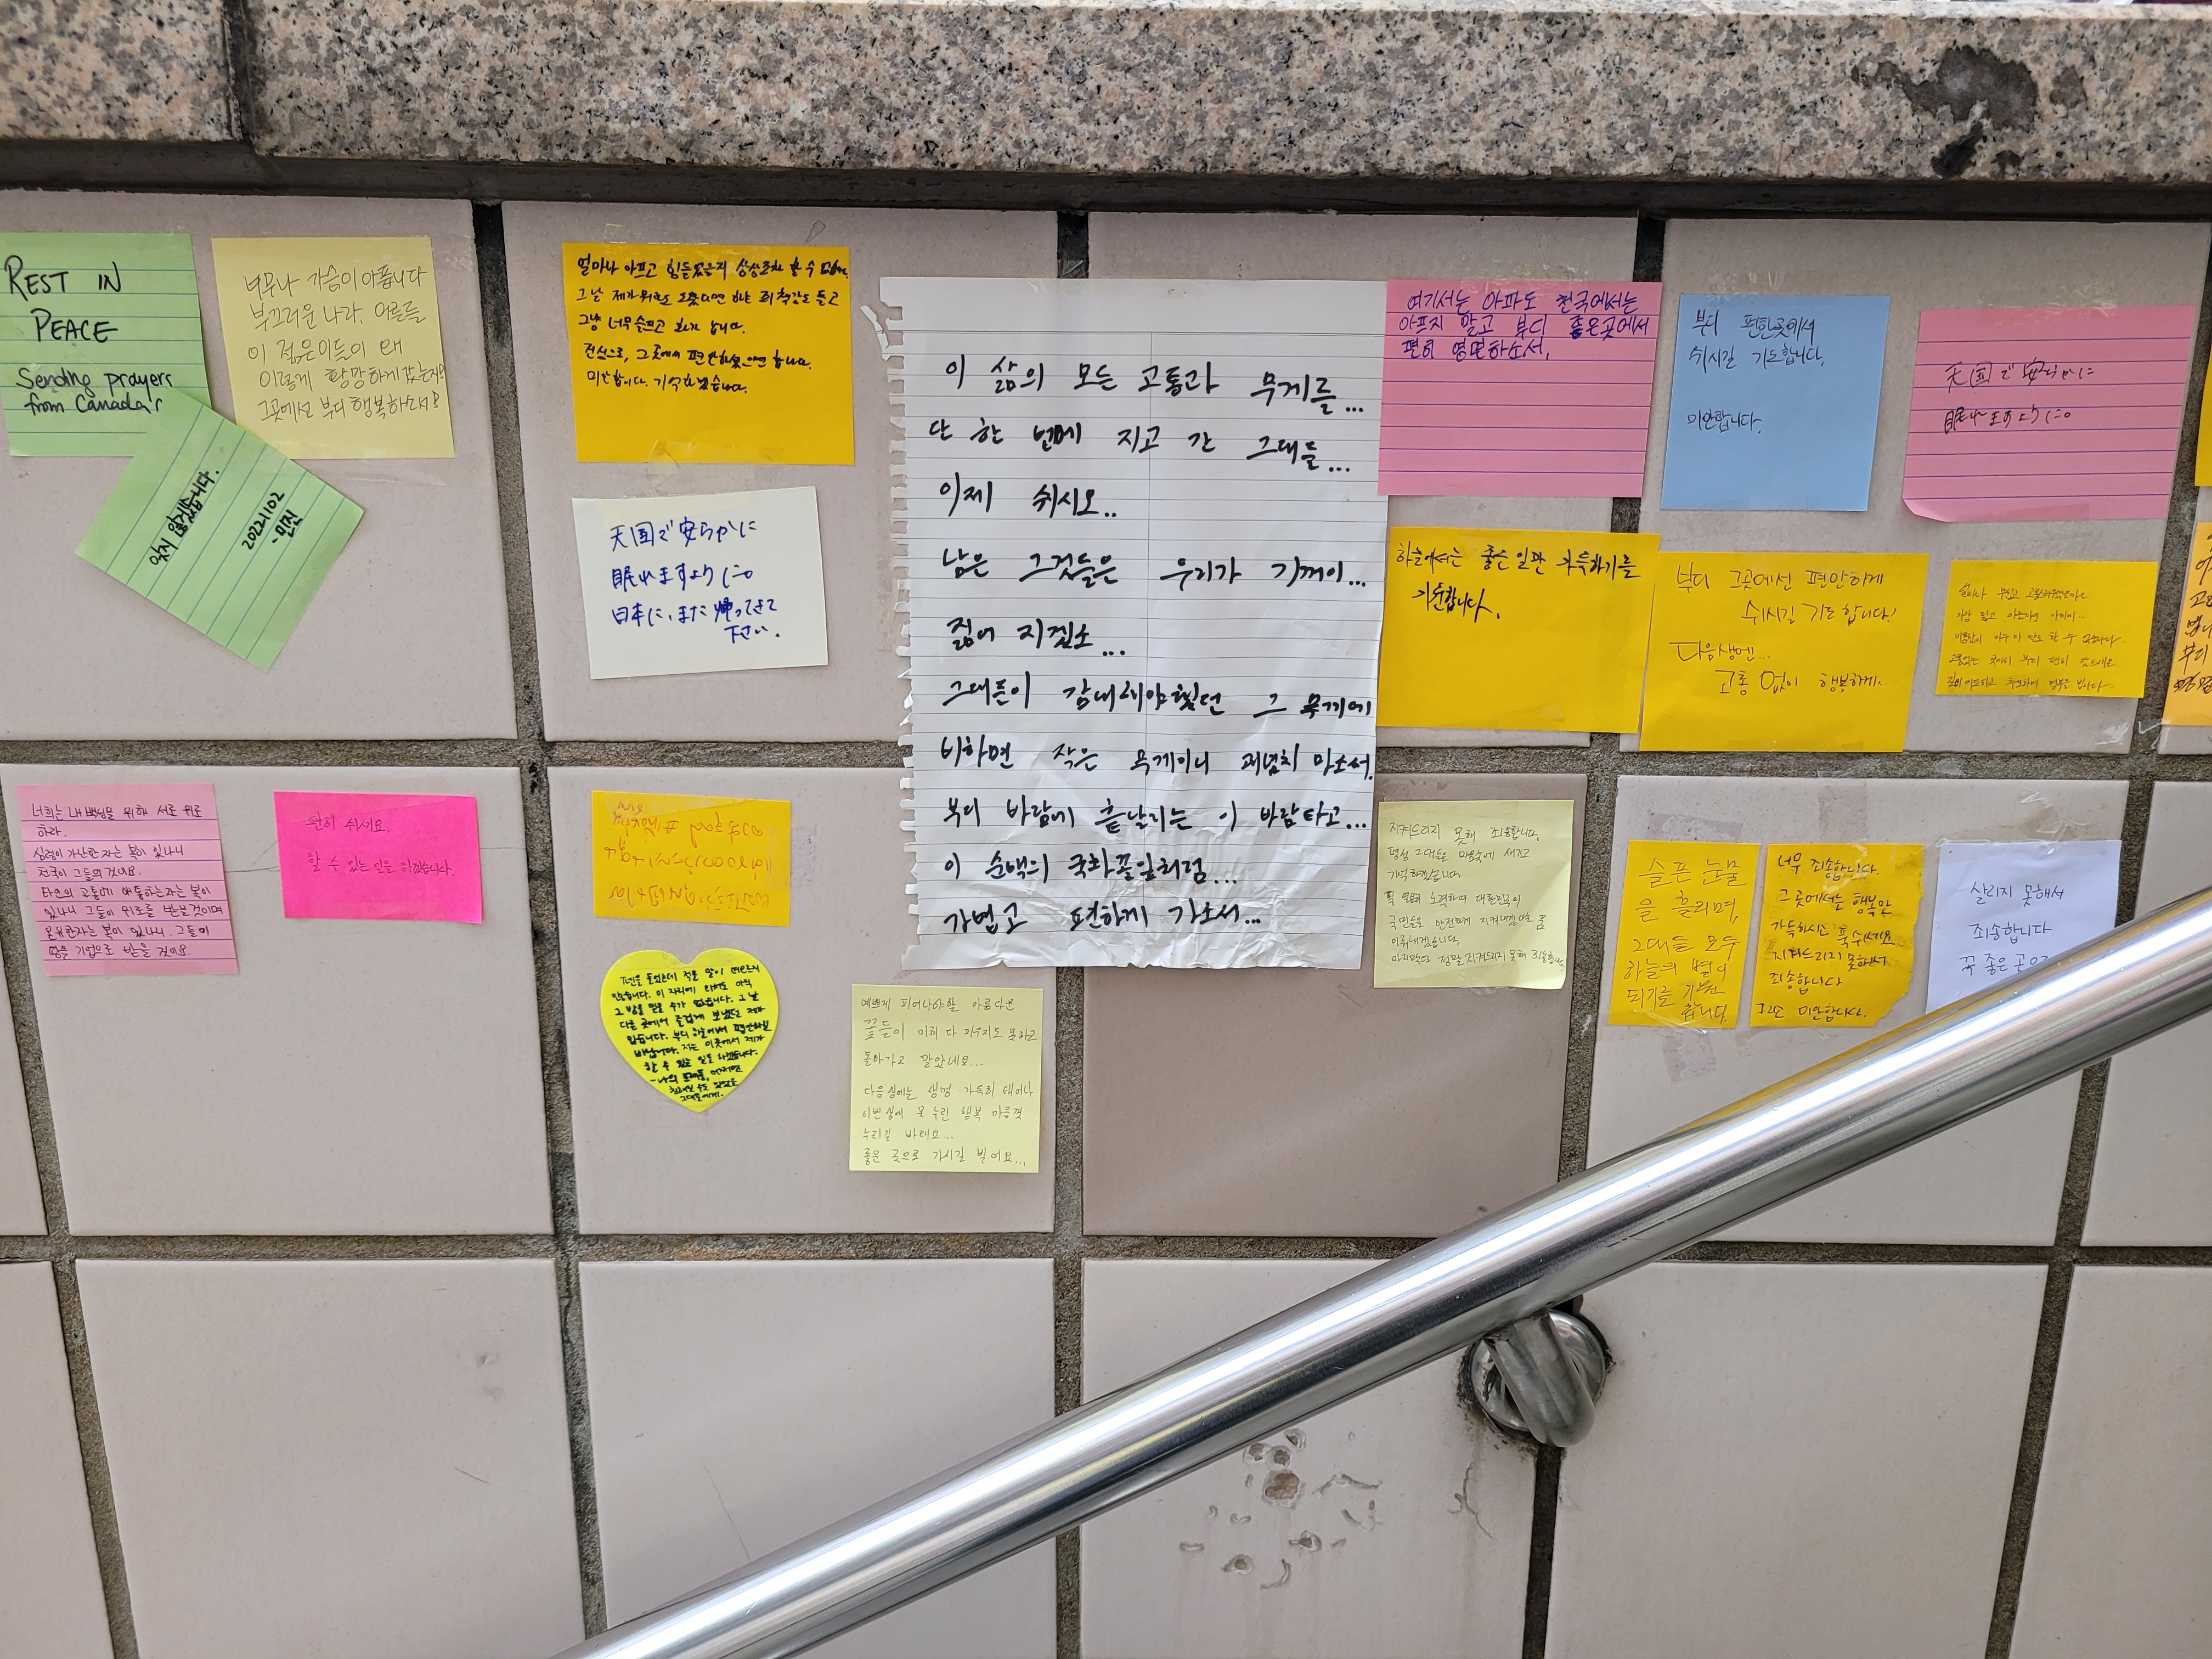 REST IN
PEACE
Sending prayers
from Canada
너무나 가슴이 아픕니다
부끄러운 나라, 어른들
이 젊은이들이 왜
이렇게 황망하게 갔는지요
그곳에선 부디 행복하소서!
잊지 않겠습니다.
20221102
-민진
얼마나 아프고 힘들었을지 상상조차 할 수 없어요.
그날 제가 뭐라도 도왔다면 하는 죄책감도 들고
그냥 너무 슬프고 화가 납니다.
진심으로, 그곳에서 편안하셨으면 합니다.
미안합니다. 기억하겠습니다.
天国で安らかに
眠れますように。
日本に、また帰ってきて
下さい.
이 삶의 모든 고통과 무게를...
단 한 번에 지고 간 그대들...
이제 쉬시오..
남은 그것들은 우리가 기꺼이...
짊어 지겠소...
그대들이 감내해야했던 그 무게에
비하면 작은 무게이니 괘념치 마소서.
부디 바람에 흩날리는 이 바람타고...
이 순백의 국화꽃잎처럼...
가볍고 편하게 가소서...
여기서는 아파도 천국에서는
아프지 말고 부디 좋은곳에서
편히 영면하소서.
부디 편한곳에서
쉬시길 기도합니다.
미안합니다.
天国で安らかに
眠れますように。
하늘에서는 좋은 일만 가득하기를
기원합니다.
부디 그곳에선 편안하게
쉬시길 기도합니다!
다음생엔...
고통 없이 행복하게.
너희는 내 백성을 위해 서로 위로
하라.
심령이 가난한 자는 복이 있나니
천국이 그들의 것이요.
타인의 고통에 애통하는자는 복이
있나니 그들이 위로를 받을 것이며
온유한자는 복이 있나니. 그들이
땅을 기업으로 받을 것이요.
편히 쉬세요.
할 수 있는 일을 하겠습니다.
펜을 들었는데 적을 말이 떠오르지
않습니다. 이 자리에 와서도 아직
그 밤을 믿을 수가 없습니다. 그 날
다른 곳에서 즐겁게 보냈던 제가
밉습니다. 부디 하늘에서 평안하길
바랍니다. 저는 이곳에서 제가
할 수 있는 일을 하겠습니다.
그대들에게.
예쁘게 피어나야할 아름다운
꽃들이 미처 다 피우지도 못하고
돌아가고 말았네요...
다음생에는 생명 가득히 태어나
이번생에 못 누린 행복 마음껏
누리길 바래요...
좋은 곳으로 가시길 빌어요...
지켜드리지 못해 죄송합니다.
평생 그대들을 마음속에 새기고
기억하겠습니다.
꼭 열심히 노력하여 대한민국의
국민들을 안전하게 지켜내겠다는 꿈
이뤄내겠습니다.
마지막으로 정말 지켜드리지 못해 죄송합니다.
슬픈 눈물
을 흘리며,
그대들 모두
하늘의 별이
되기를 기원
합니다.
너무 죄송합니다.
그곳에서는 행복만
가득하시고 푹 쉬세요
지켜드리지 못해서
죄송합니다
미안합니다.
살리지 못해서
죄송합니다
꼭 좋은 곳으로